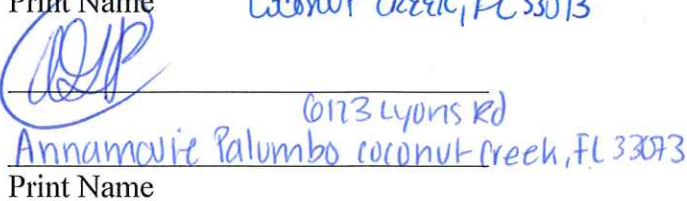 Print Name Coconut Creek, FL 33073
6123 Lyons Rd
Annamarie Palumbo coconut Creek, FL 33073
Print Name